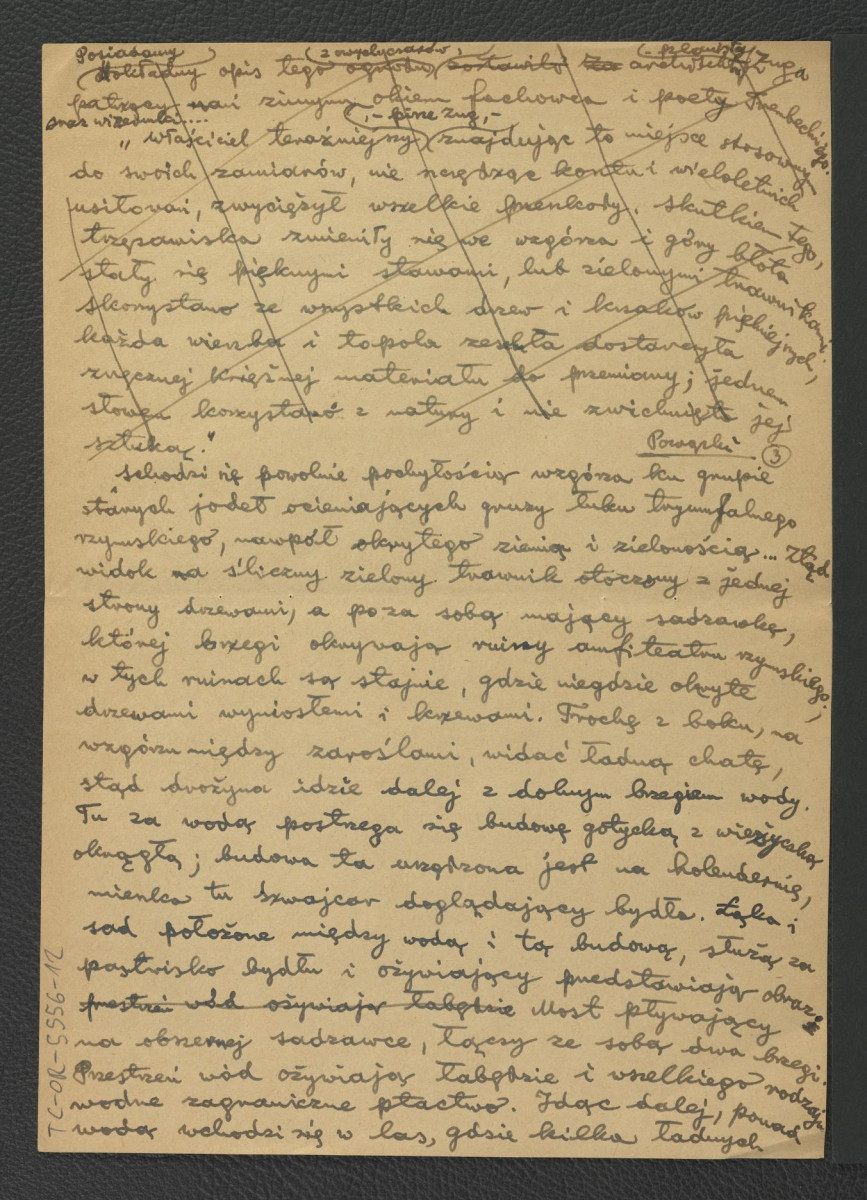 Posiadamy (z owych czasów, (- pełnisty
dokładny opis tego ogrodu, zostawiło za architekty Zuga
patrzący nań zimnym okiem fachowca i poety Trembeckiego.
oraz wizerunki....
(,- pisze Zug,-
"właściciel teraźniejszy znajdując to miejsce stosownym
do swoich zamiarów, nie szczędząc kosztu i wieloletnich
usiłowań, zwyciężył wszelkie przeszkody. Skutkiem tego,
trzęsawiska zmieniły się we wzgórza i góry błota
stały się pięknymi stawami, lub zielonymi trawnikami.
Skorzystano ze wszystkich drzew i krzaków piękniejszych,
każda wierzba i topola zeschła dostarczyła
zręcznej Księżnej materiału do przemiany; jednem
słowem korzystano z natury i nie zwichnięto jej
sztuką."
Powązki (3)
Schodzi się powolnie pochyłością wzgórza ku grupie
starych jodeł ocieniających gruzy łuku tryumfalnego
rzymskiego, nawpół okrytego ziemią i zielonością... Ztąd
widok na śliczny zielony trawnik otoczony z jednej
strony drzewami, a poza sobą mający sadzawkę,
której brzegi okrywają ruiny amfiteatru rzymskiego;
w tych ruinach są stajnie, gdzie niegdzie okryte
drzewami wyniosłemi i krzewami. Trochę z boku, na
wzgórzu między zaroślami, widać ładną chatę,
stąd drożyna idzie dalej z dolnym brzegiem wody.
Tu za wodą postrzega się budowę gotycką z wieżyczką
okrągłą; budowa ta urządzona jest na holendernię,
mieszka tu Szwajcar doglądający bydła. Łąka i
sad położone między wodą i tą budową, służą za
pastwisko bydłu i ożywiający przedstawiają obraz.
przestrzeń wód ożywiają łabędzie Most pływający
na obszernej sadzawce, łączy ze sobą dwa brzegi.
Przestrzeń wód ożywiają łabędzie i wszelkiego rodzaju
wodne zagraniczne ptactwo. Idąc dalej, ponad
wodą wchodzi się w las, gdzie kilka ładnych
TC-OR-5556-12